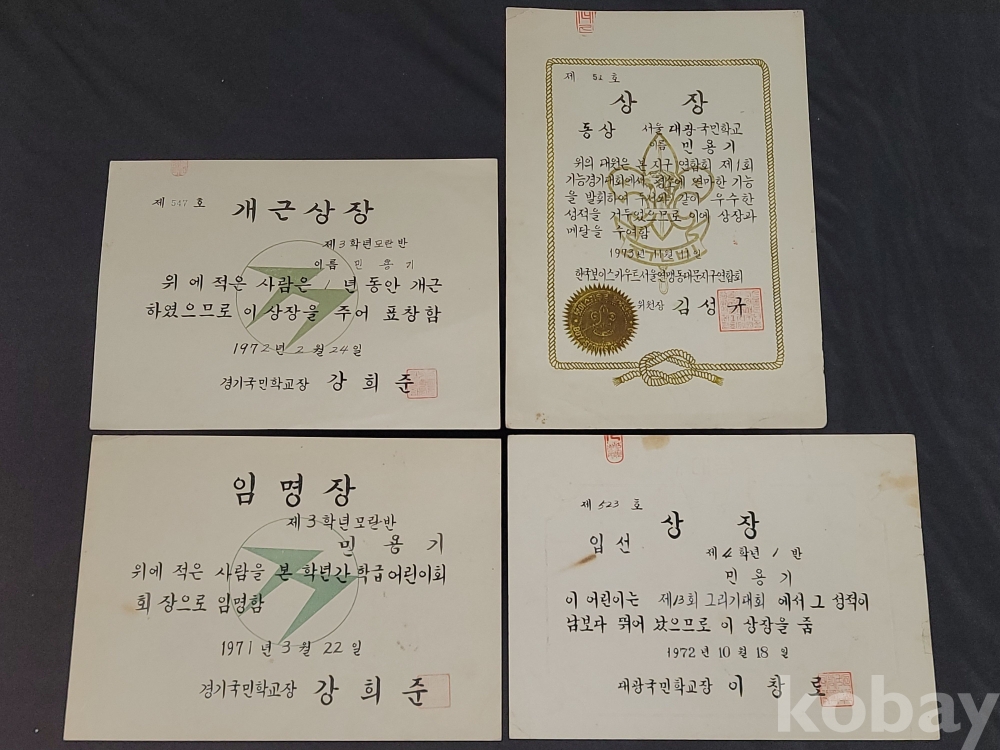 제 547 호
개근상장
제3학년모란반
이름 민용기
위에 적은 사람은 1년 동안 개근
하였으므로 이 상장을 주어 표창함
1972년 2월 24일
경기국민학교장 강희준
제 51 호
상장
동상 서울 대광국민학교
이름 민용기
위의 대원은 본 지구 연합회 제1회
기능경기대회에서 평소에 연마한 기능
을 발휘하여 두서와 같이 우수한
성적을 거두었으므로 이에 상장과
메달을 수여함
1973년 11월 11일
한국보이스카우트서울연맹동대문지구연합회
위원장 김성규
임명장
제3학년모란반
민용기
위에 적은 사람을 본 학년간 학급어린이회
회장으로 임명함
1971년 3월 22일
경기국민학교장 강희준
제 523 호
상장
입선
제4학년 1반
민용기
이 어린이는 제13회 그리기대회에서 그 성적이
남보다 뛰어났으므로 이 상장을 줌
1972년 10월 18일
대광국민학교장 이창로
kobay